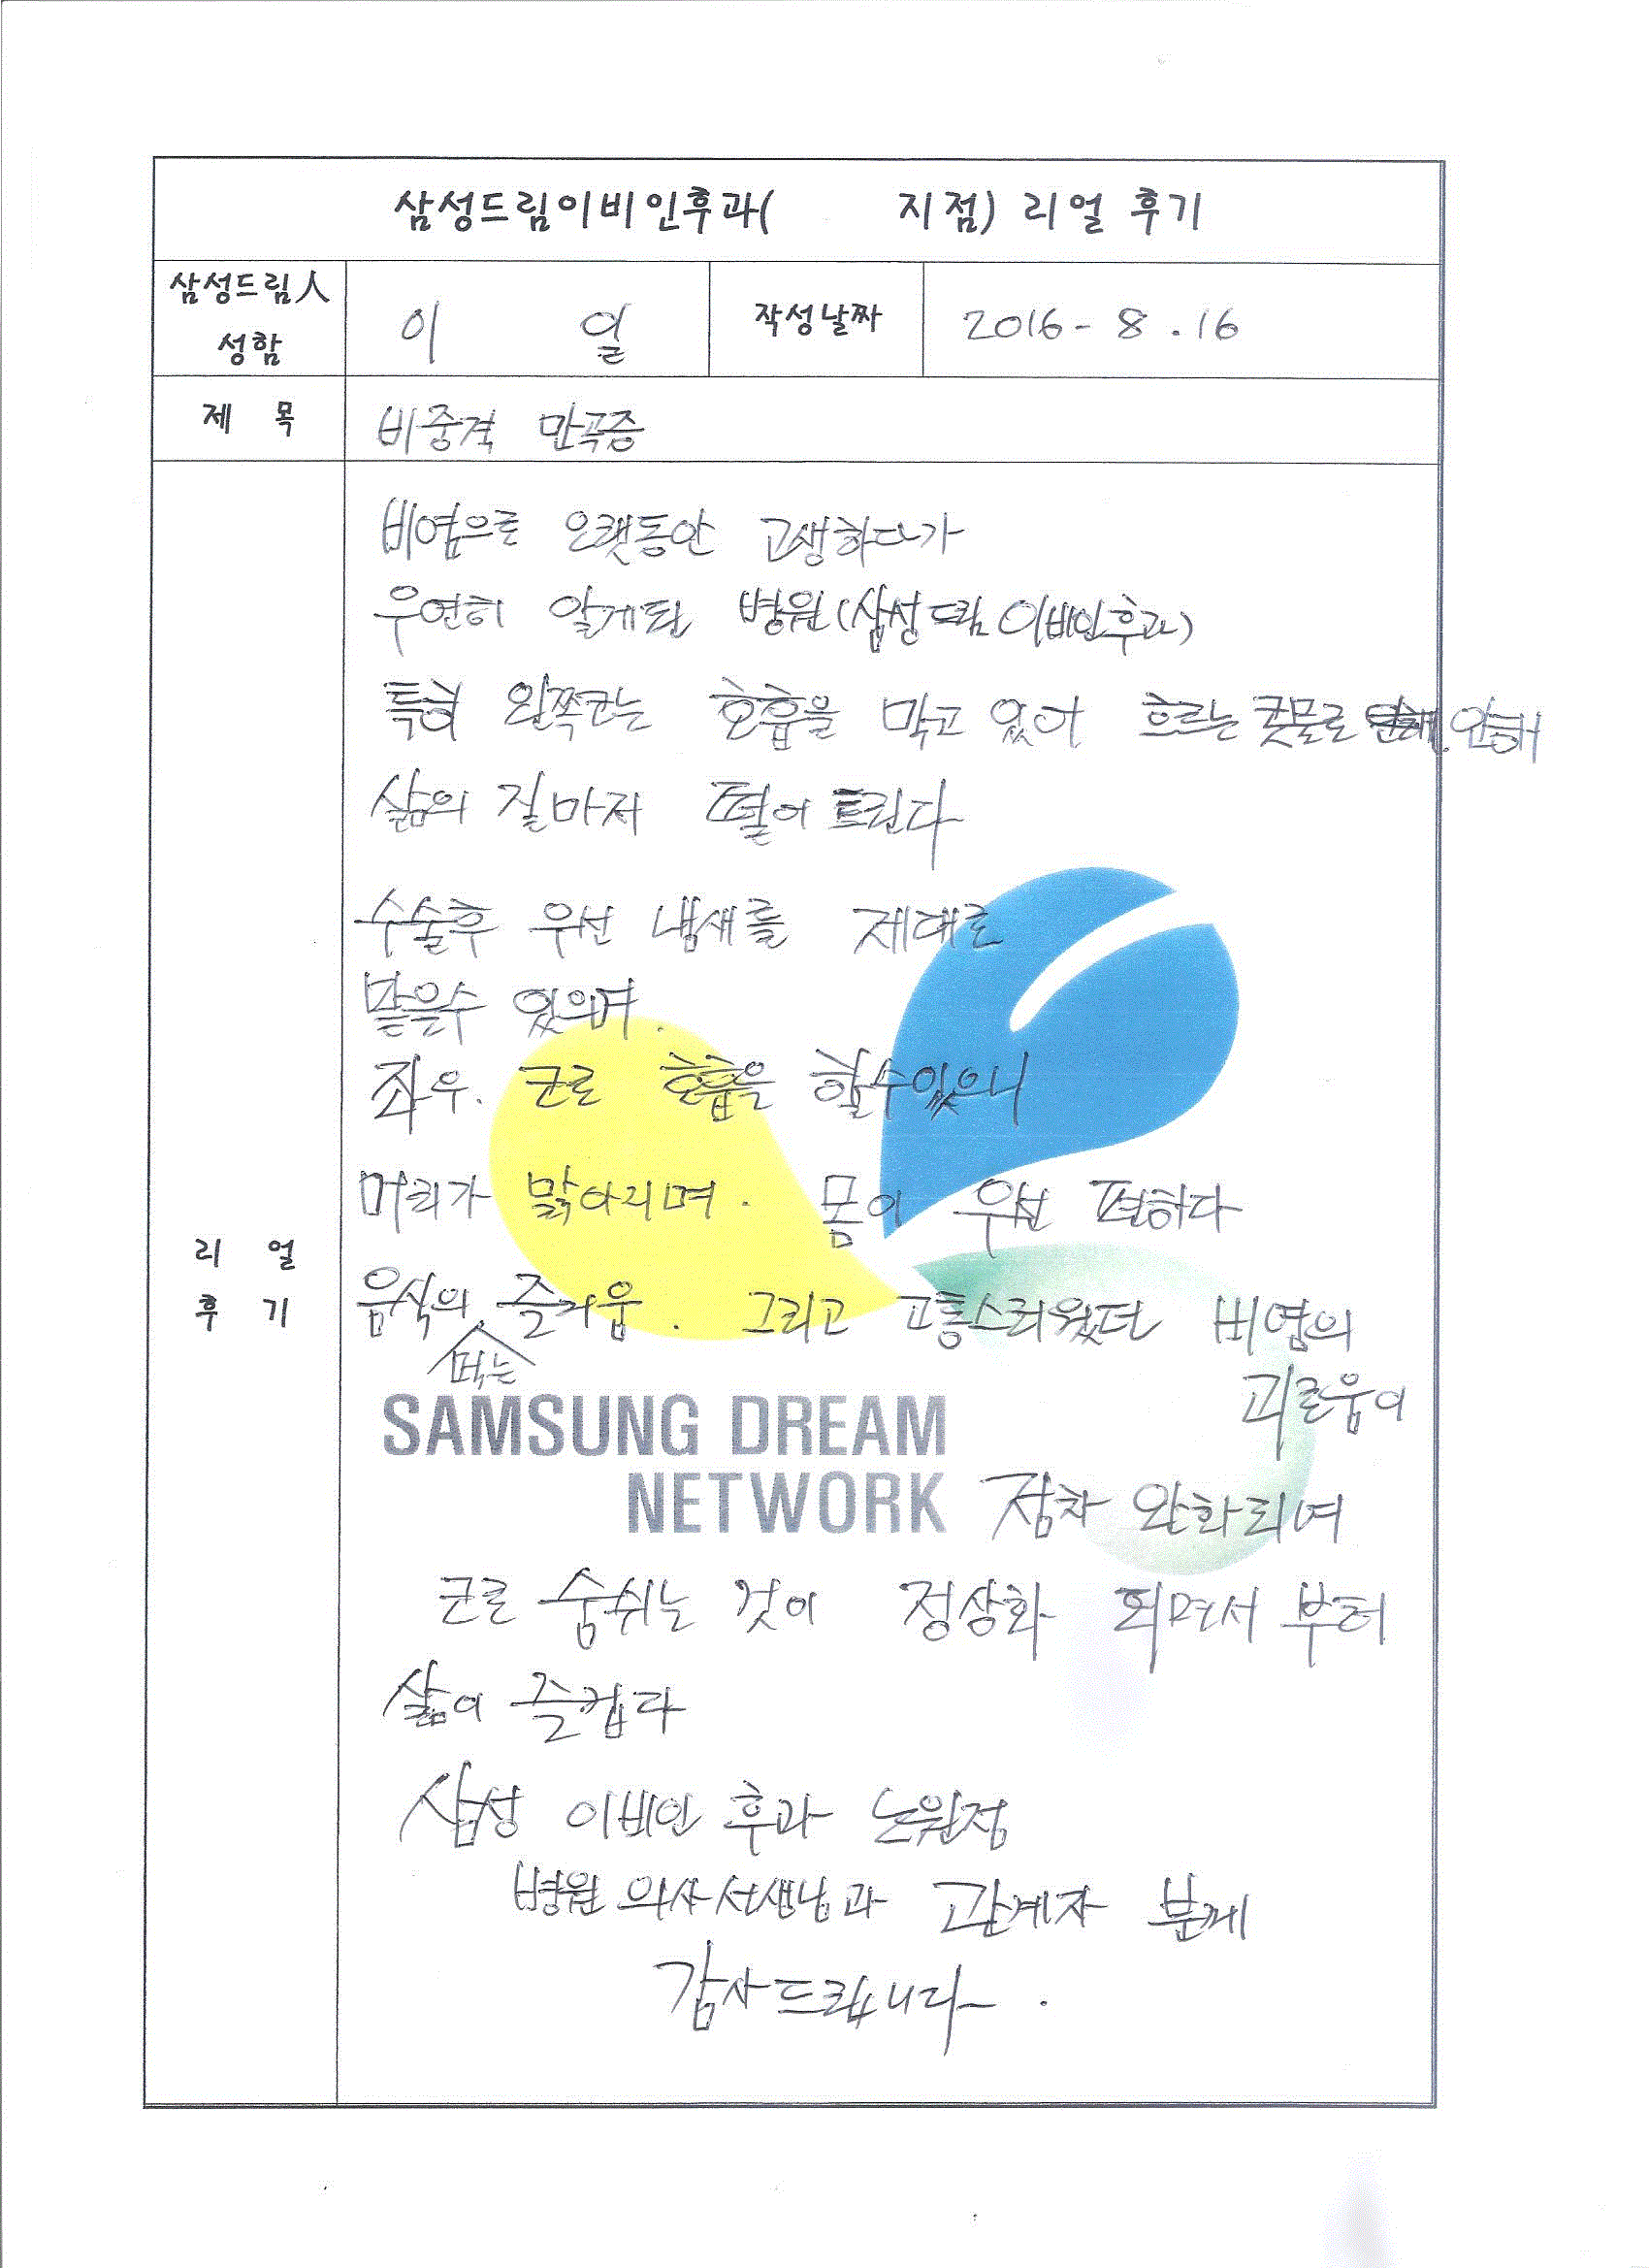 삼성드림이비인후과( 지점) 리얼 후기
삼성드림人 성함
이 일
작성날짜
2016-8.16
제 목
비중격 만곡증
리 얼 후 기
비염으로 오랫동안 고생하다가
우연히 알게된 병원(삼성드림 이비인후과)
특히 왼쪽코는 호흡을 막고 있어 흐르는 콧물로 인해
삶의 질마저 떨어트린다
수술후 우선 냄새를 제대로
맡을수 있으며.
좌우. 코로 호흡을 할수있으니
머리가 맑아지며. 몸이 우선 편하다
음식의 먹는 즐거움. 그리고 고통스러웠던 비염의
괴로움이
SAMSUNG DREAM
NETWORK
점차 완화되며
코로 숨쉬는 것이 정상화 되면서 부터
삶이 즐겁다
삼성 이비인 후과 노원점
병원 의사선생님과 관계자 분께
감사드립니다.